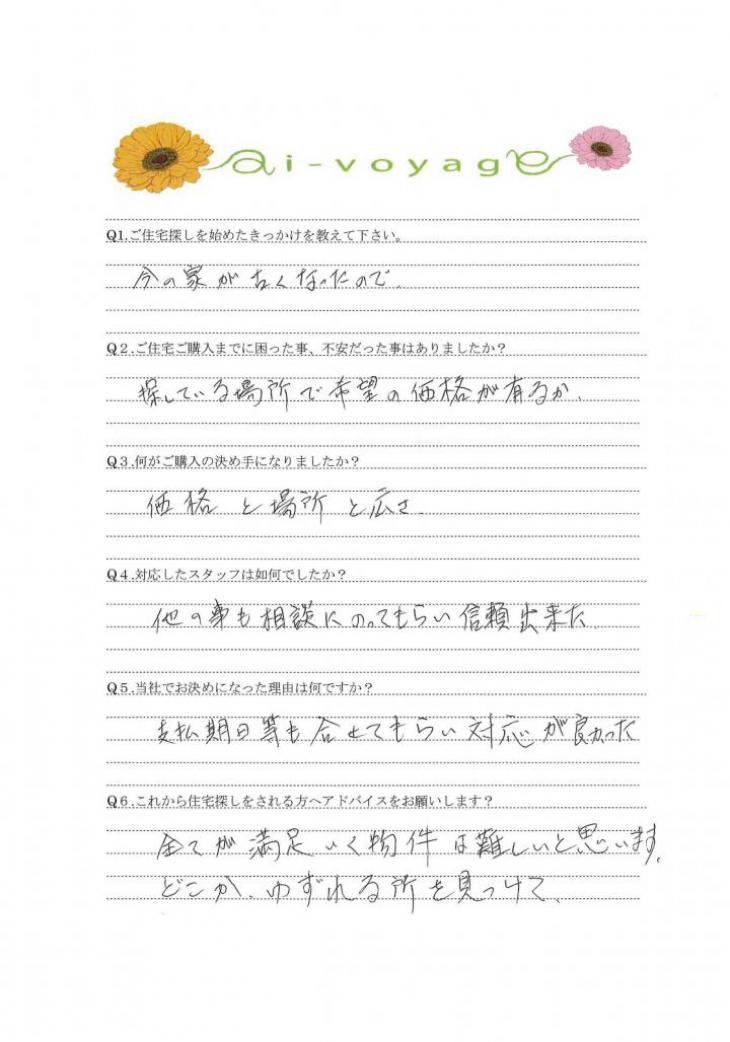 ai-voyage
Q1.ご住宅探しを始めたきっかけを教えて下さい。
今の家が古くなったので.
Q2.ご住宅ご購入までに困った事、不安だった事はありましたか？
探している場所で希望の価格が有るか.
Q3.何がご購入の決め手になりましたか？
価格 と 場所 と広さ.
Q4.対応したスタッフは如何でしたか？
他の事も相談にのってもらい信頼出来た.
Q5.当社でお決めになった理由は何ですか？
支払期日等も合せてもらい対応が良かった
Q6.これから住宅探しをされる方へアドバイスをお願いします？
全てが満足いく物件は難しいと思います.
どこか、ゆずれる所を見つけて.